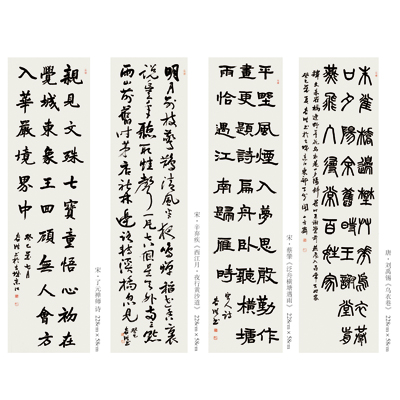 朱雀橋邊野草花烏衣巷
口夕陽斜舊時王謝堂前
燕飛入尋常百姓家
唐·刘禹锡《乌衣巷》 228cm×58cm
平野風煙入夢思慇懃作
畫更題詩扁舟臥聽橫塘
雨恰遇江南歸雁時
宋·蔡肇《泛舟横塘遇雨》 228cm×58cm
明月別枝驚鵲清風半夜鳴蟬稻花香裏
說豐年聽取蛙聲一片七八個星天外兩三點
雨山前舊時茅店社林邊路轉溪橋忽見
宋·辛弃疾《西江月·夜行黄沙道》 228cm×58cm
親見文殊七寶童悟心初在
覺城東象王回顧無人會方
入華嚴境界中
宋·了元禅师 诗 228cm×58cm